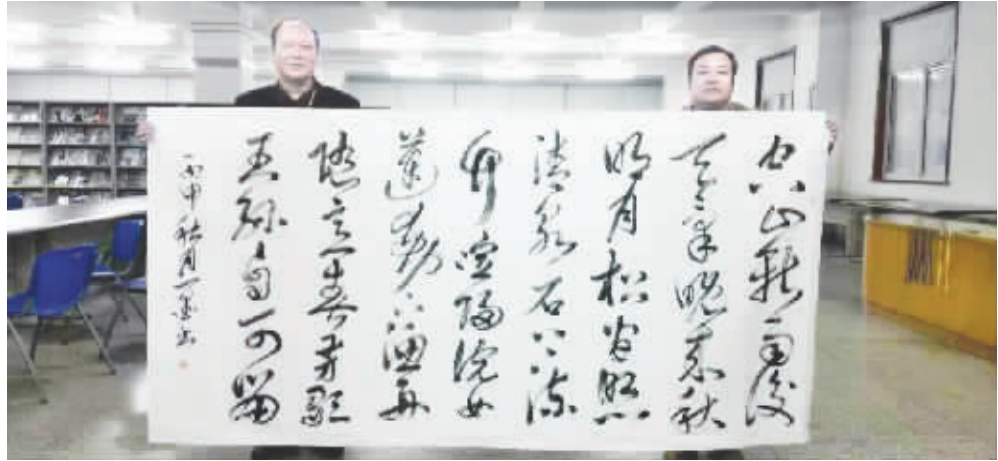 空山新雨後
天氣晚來秋
明月松間照
清泉石上流
竹喧歸浣女
蓮動下漁舟
隨意春芳歇
王孫自可留
丙申秋月一書